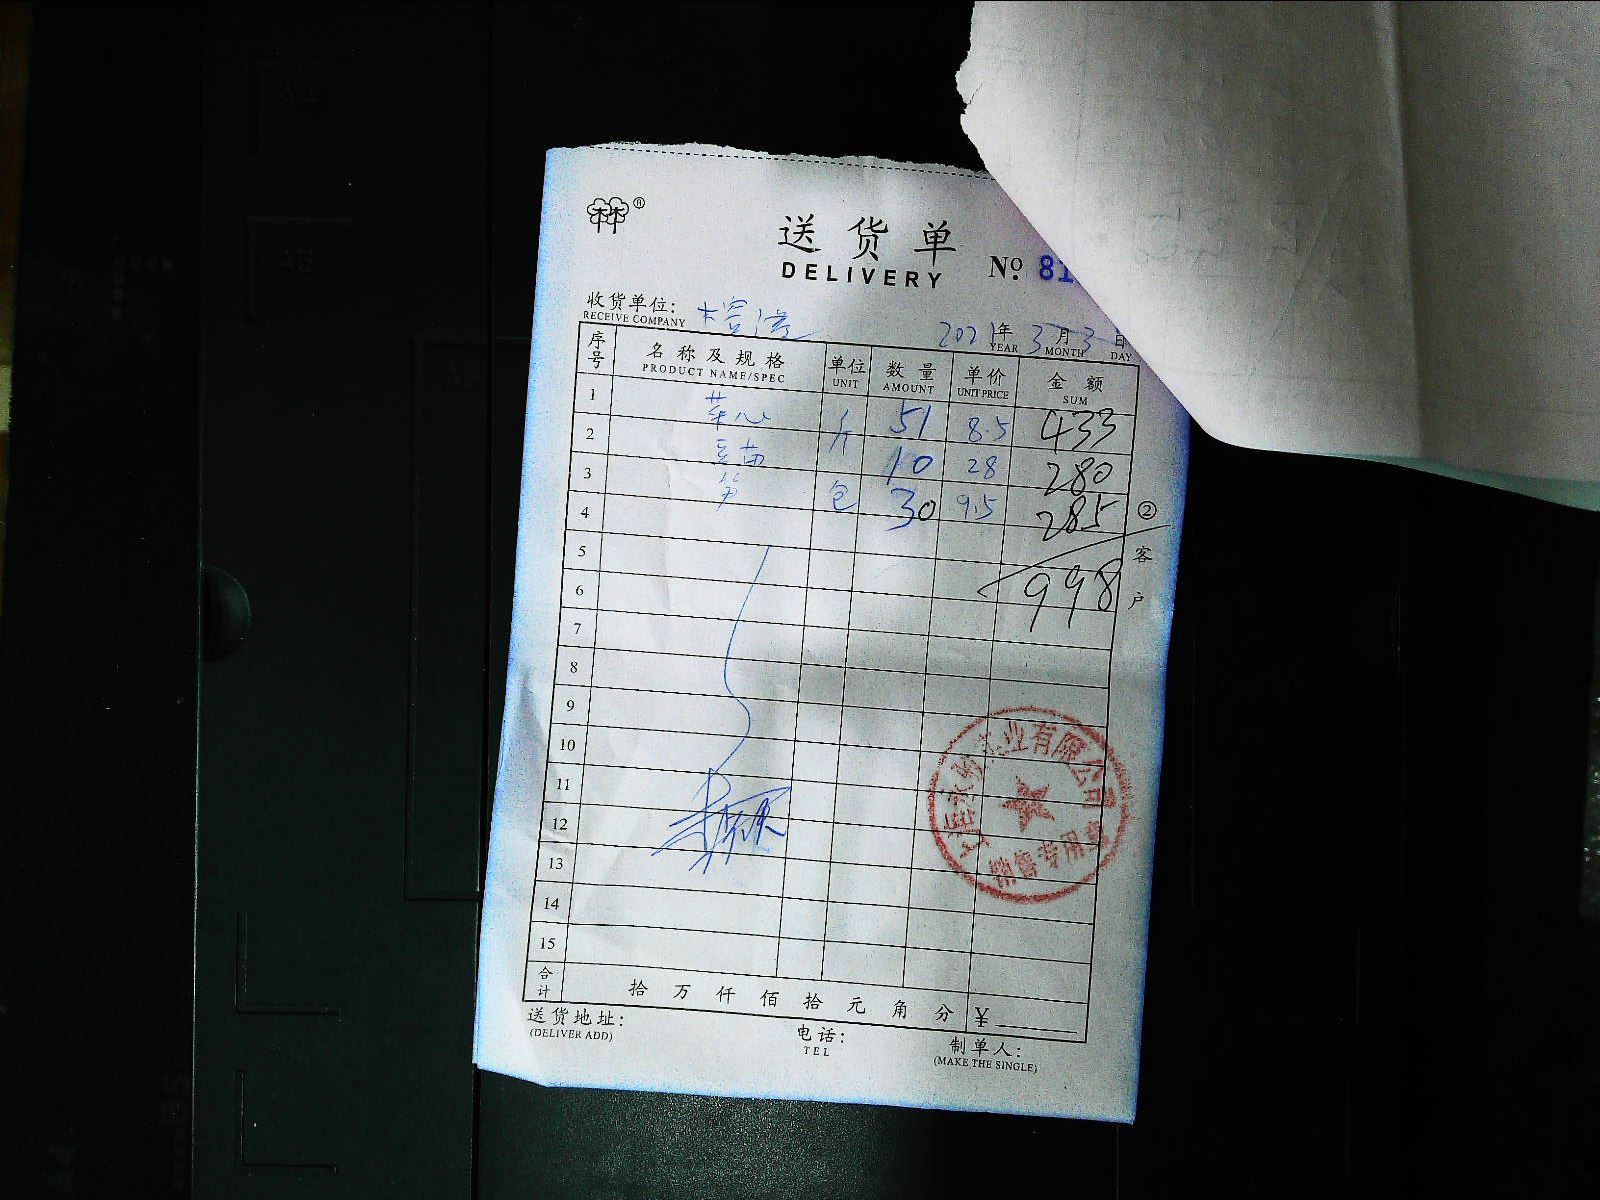 送货单
DELIVERY
№ 81
收货单位:
RECEIVE COMPANY
2021年3月3日
YEAR MONTH DAY
序号 名称及规格 单位 数量 单价 金额
PRODUCT NAME/SPEC UNIT AMOUNT UNIT PRICE SUM
1 菜心 斤 51 8.5 433
2 豆苗 10 28 280
3 笋 包 30 9.5 285
4
5
998
6
7
8
9
10
11
12
13
14
15
② 客户
业有限公司
销售专用章
合计 拾万仟佰拾元角分 ¥
送货地址:
(DELIVER ADD)
电话:
TEL
制单人:
(MAKE THE SINGLE)